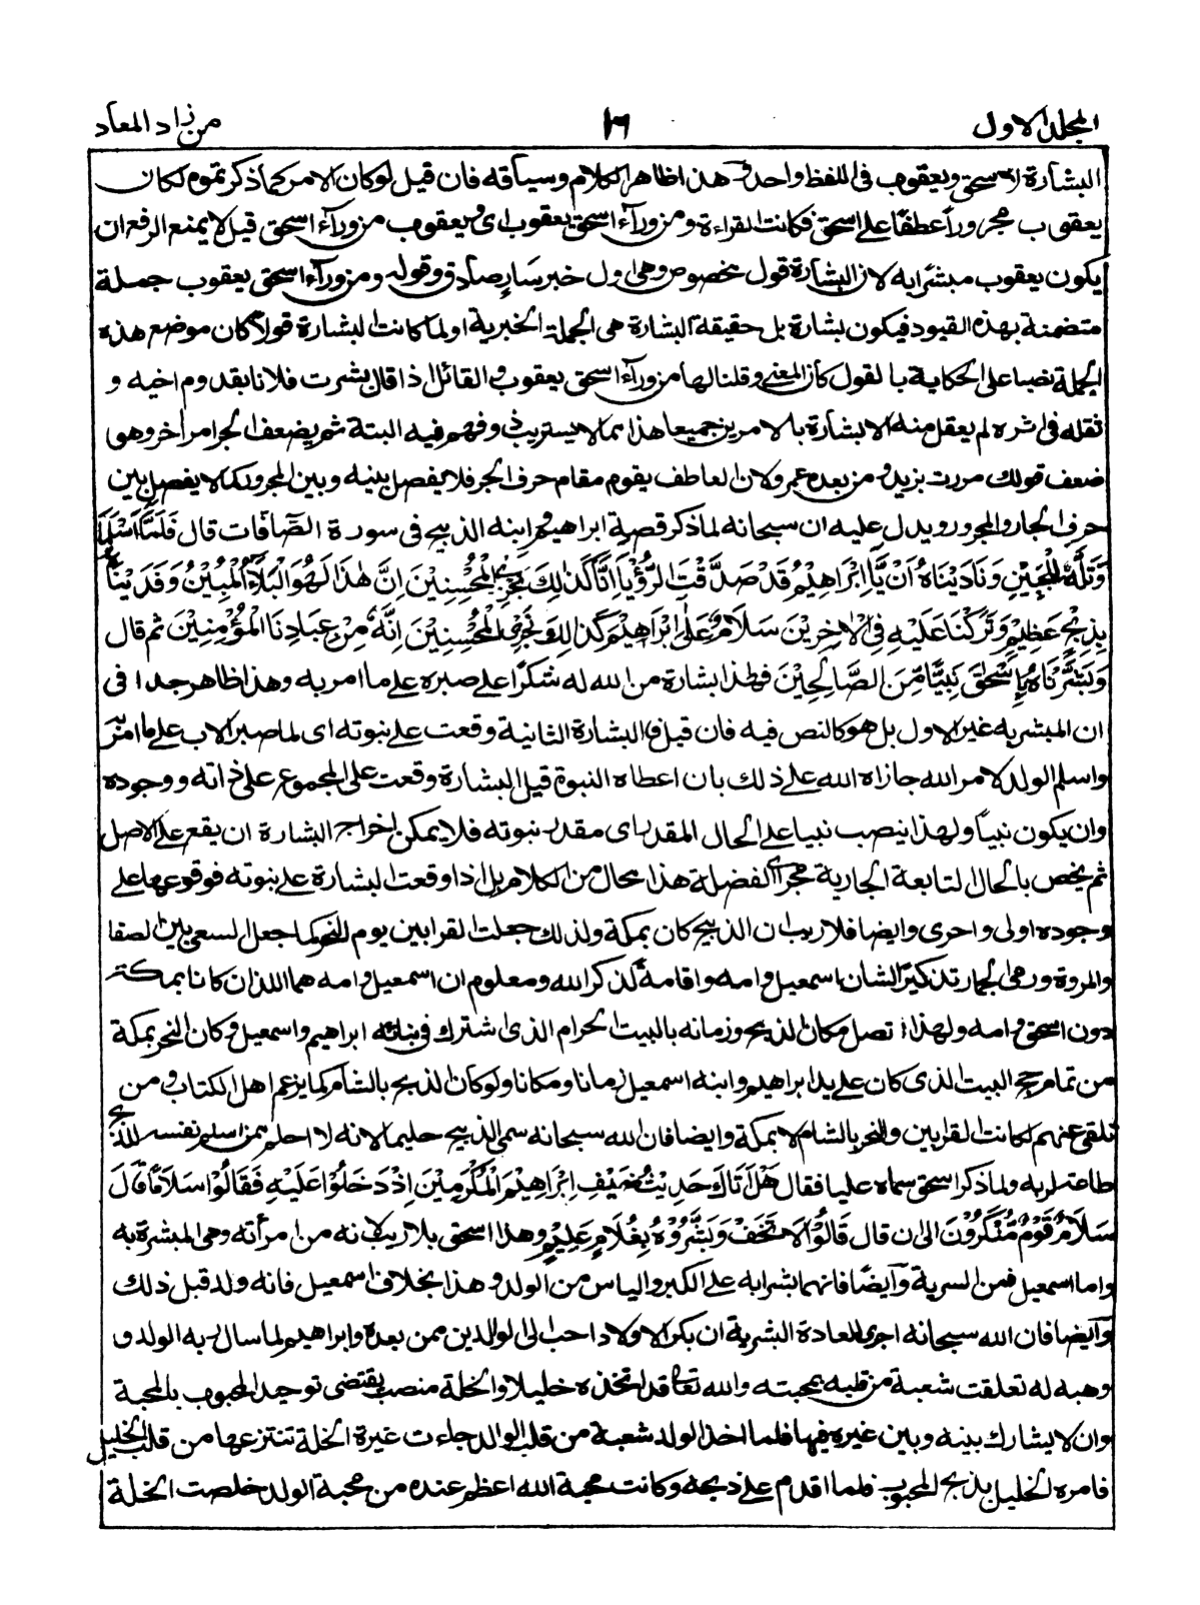 المجلد الاول ١٦ من زاد المعاد
البشارة لاسحق ويعقوب فى اللفظ واحد وهذا ظاهر الكلام وسياقه فان قيل لو كان الامر كما ذكرتموه لكان
يعقوب مجرورا عطفا على اسحق فكانت القراءة ومن ورآء اسحق يعقوب اى وبيعقوب من ورآء اسحق قيل لا يمنع الرفع ان
يكون يعقوب مبشرا به لان البشارة قول مخصوص وهى اول خبر سارٍ صادق وقوله ومن ورآء اسحق يعقوب جملة
متضمنة بهذه القيود فيكون بشارة بل حقيقة البشارة هى الجملة الخبرية او لما كانت البشارة قولا كان موضع هذه
الجملة نصبا على الحكاية بالقول كأن المعنى وقلنا لها من ورآء اسحق يعقوب والقائل اذا قال بشرت فلانا بقدوم اخيه و
ثقله فى اثره لم يعقل منه الا البشارة بالامرين جميعا هذا مما لا يستريب ذو فهم فيه البتة ثم يضعف الجر امر آخر وهو
ضعف قولك مررت بزيد ومن بعده عمرو ولان العاطف يقوم مقام حرف الجر فلا يفصل بينه وبين المجرور كما لا يفصل بين
حرف الجار والمجرور ويدل عليه ان سبحانه لما ذكر قصة ابراهيم وابنه الذبيح فى سورة الصّآفات قال فَلَمَّآ اَسْلَمَا
وَتَلَّهٗ لِلْجَبِيْنِ وَنَادَيْنَاهُ اَنْ يَّآ اِبْرَاهِيْمُ قَدْ صَدَّقْتَ الرُّؤْيَآ اِنَّا كَذٰلِكَ نَجْزِى الْمُحْسِنِيْنَ اِنَّ هٰذَا لَهُوَ الْبَلَآءُ الْمُبِيْنُ وَفَدَيْنَاهُ
بِذِبْحٍ عَظِيْمٍ وَتَرَكْنَا عَلَيْهِ فِى الْاٰخِرِيْنَ سَلَامٌ عَلٰى اِبْرَاهِيْمَ كَذٰلِكَ نَجْزِى الْمُحْسِنِيْنَ اِنَّهٗ مِنْ عِبَادِنَا الْمُؤْمِنِيْنَ ثم قال
وَبَشَّرْنَاهُ بِاِسْحٰقَ نَبِيًّا مِّنَ الصَّالِحِيْنَ فهذا بشارة من الله له شكرا على صبره على ما امر به وهذا ظاهر جدا فى
ان المبشر به غير الاول بل هو كالنص فيه فان قيل فالبشارة الثانية وقعت على نبوته اى لما صبر الاب على ما امر به
واسلم الولد لامر الله جازاه الله على ذلك بان اعطاه النبوة قيل البشارة وقعت على المجموع على ذاته ووجوده
وان يكون نبياً ولهذا ينصب نبيا على الحال المقدر اى مقدر نبوته فلا يمكن اخراج البشارة ان يقع على الاصل
ثم يخص بالحال التابعة الجارية مجرى الفضلة هذا محال من الكلام بل اذا وقعت البشارة على نبوته فوقوعها على
وجوده اولى واحرى وايضا فلا ريب ان الذبيح كان بمكة ولذلك جعلت القرابين يوم النحر كما جعل السعى بين الصفا
والمروة ورمى الجمار تذكيرًا لشان اسمعيل وامه واقامة لذكر الله ومعلوم ان اسمعيل وامه هما اللذان كانا بمكة
دون اسحق وامه ولهذا اتصل مكان الذبح وزمانه بالبيت الحرام الذى اشترك فى بنائه ابراهيم واسمعيل وكان النحر بمكة
من تمام حج البيت الذى كان على يد ابراهيم وابنه اسمعيل زمانا ومكانا ولو كان الذبح بالشام كما يزعم اهل الكتاب ومن
تلقى عنهم لكانت القرابين والنحر بالشام لا بمكة وايضا فان الله سبحانه سمى الذبيح حليما لانه لا احلم ممن اسلم نفسه للذبح
طاعة لربه ولما ذكر اسحق سماه عليما فقال هَلْ اَتَاكَ حَدِيْثُ ضَيْفِ اِبْرَاهِيْمَ الْمُكْرَمِيْنَ اِذْ دَخَلُوْا عَلَيْهِ فَقَالُوْا سَلَامًا قَالَ
سَلَامٌ قَوْمٌ مُّنْكَرُوْنَ الى ان قال قَالُوْا لَا تَخَفْ وَبَشَّرُوْهُ بِغُلَامٍ عَلِيْمٍ وهذا اسحق بلا ريب لانه من امرأته وهى المبشرة به
واما اسمعيل فمن السرية وَاَيضًا فانهما بشرا به على الكبر والياس من الولد وهذا بخلاف اسمعيل فانه ولد قبل ذلك
وَاَيضا فان الله سبحانه اجرى العادة البشرية ان بكر الاولاد احب الى الوالدين ممن بعده وابراهيم لما سال ربه الولد و
وهبه له تعلقت شعبة من قلبه بمحبته والله تعالى قد اتخذه خليلا والخلة منصب يقتضى توحيد المحبوب بالمحبة
وان لا يشارك بينه وبين غيره فيها فلما اخذ الولد شعبة من قلب الوالد جاءت غيرة الخلة تنتزعها من قلب الخليل
فامره الخليل بذبح المحبوب فلما اقدم على ذبحه وكانت محبة الله اعظم عنده من محبة الولد خلصت الخلة